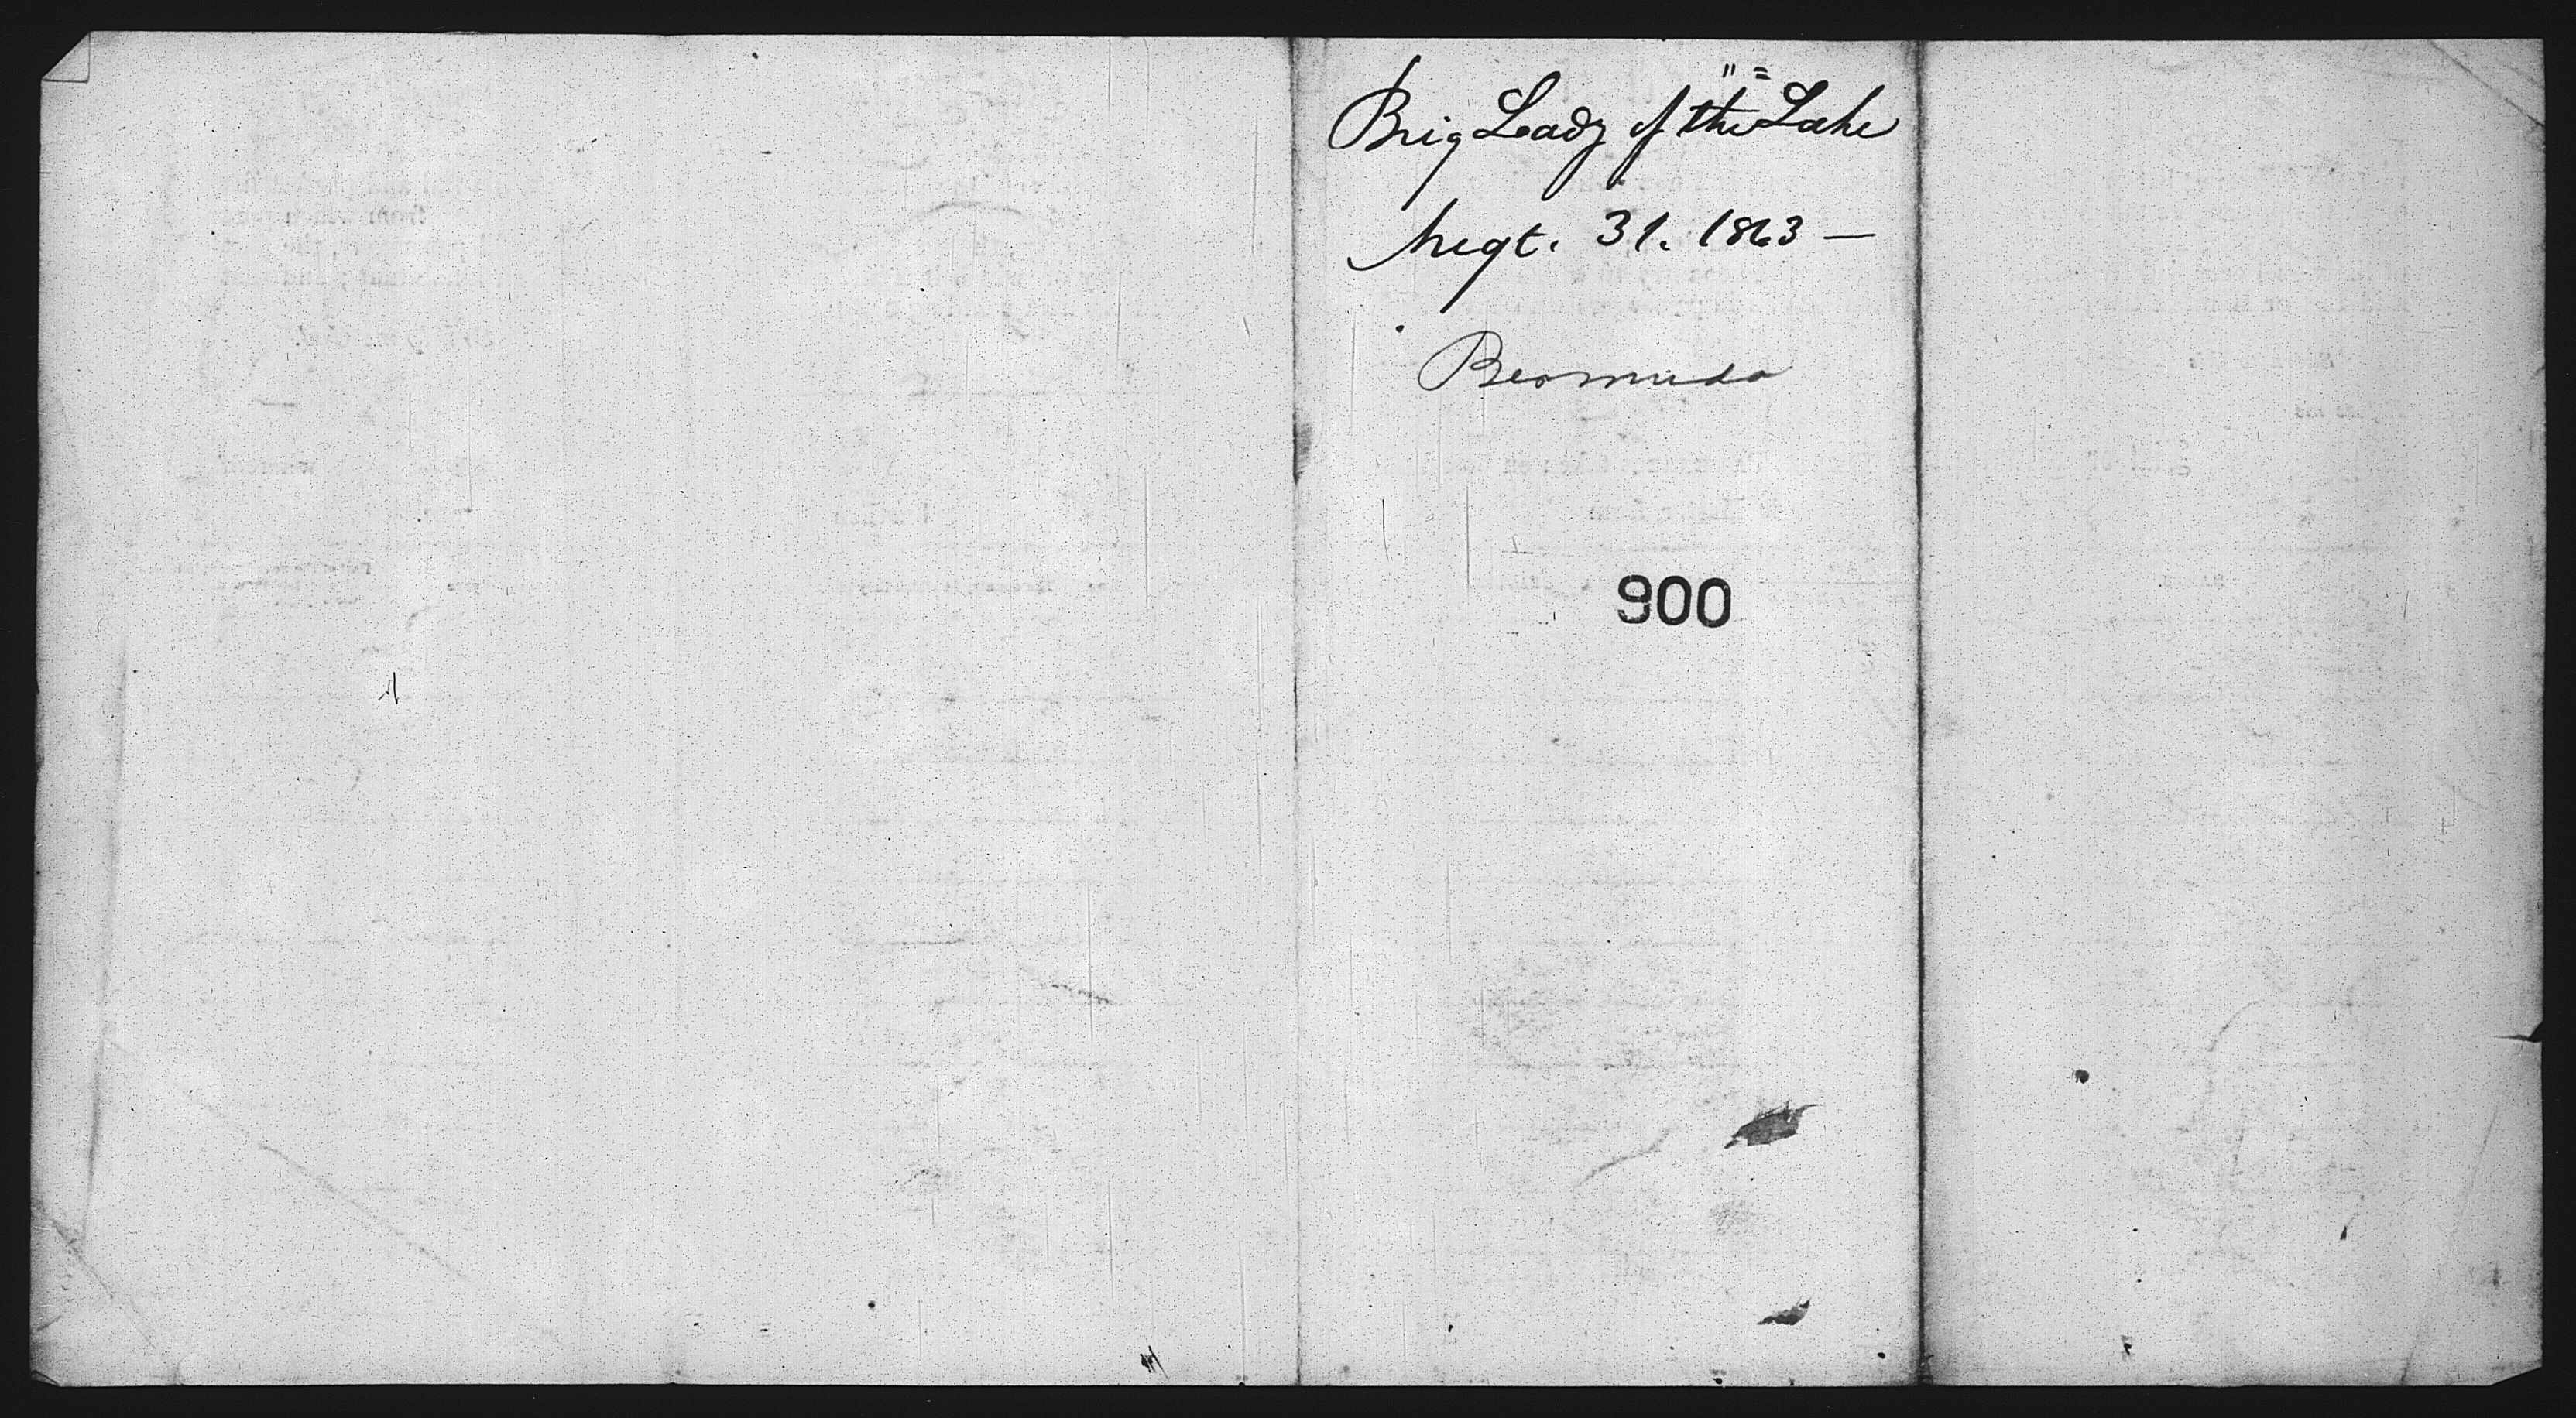 Brig Lady of the Lake
Augt. 31. 1863 —
Bermuda
900